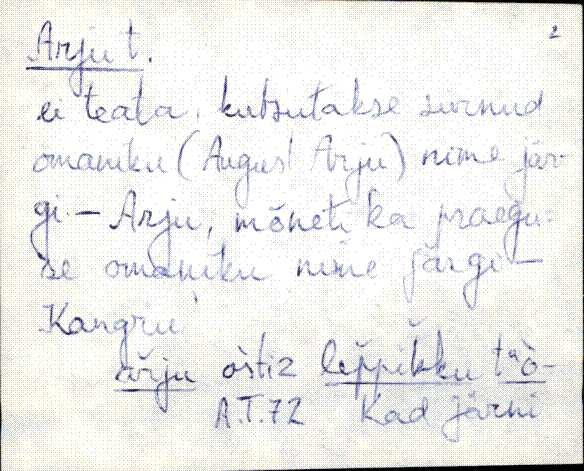 2
Arju t.
ei teata, kutsutakse surnud
omaniku (August Arju) nime jär-
gi – Arju, mõneti ka praegu-
se omaniku nime järgi –
Kangru
ar̆ju òstiz lep̆pikku
A.T. 72 Kad Järni